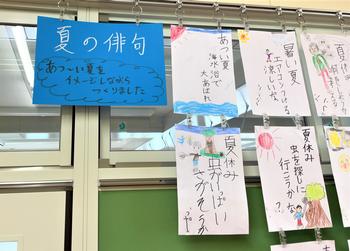 夏の俳句
あつーい夏を
イメージしながら
つくりました
あつい夏
海水浴で
大あばれ
暑い夏
エアコンつける
涼しいな。
夏休み
虫がいっぱい
さがそうか
夏休み
虫を探しに
行こうかな